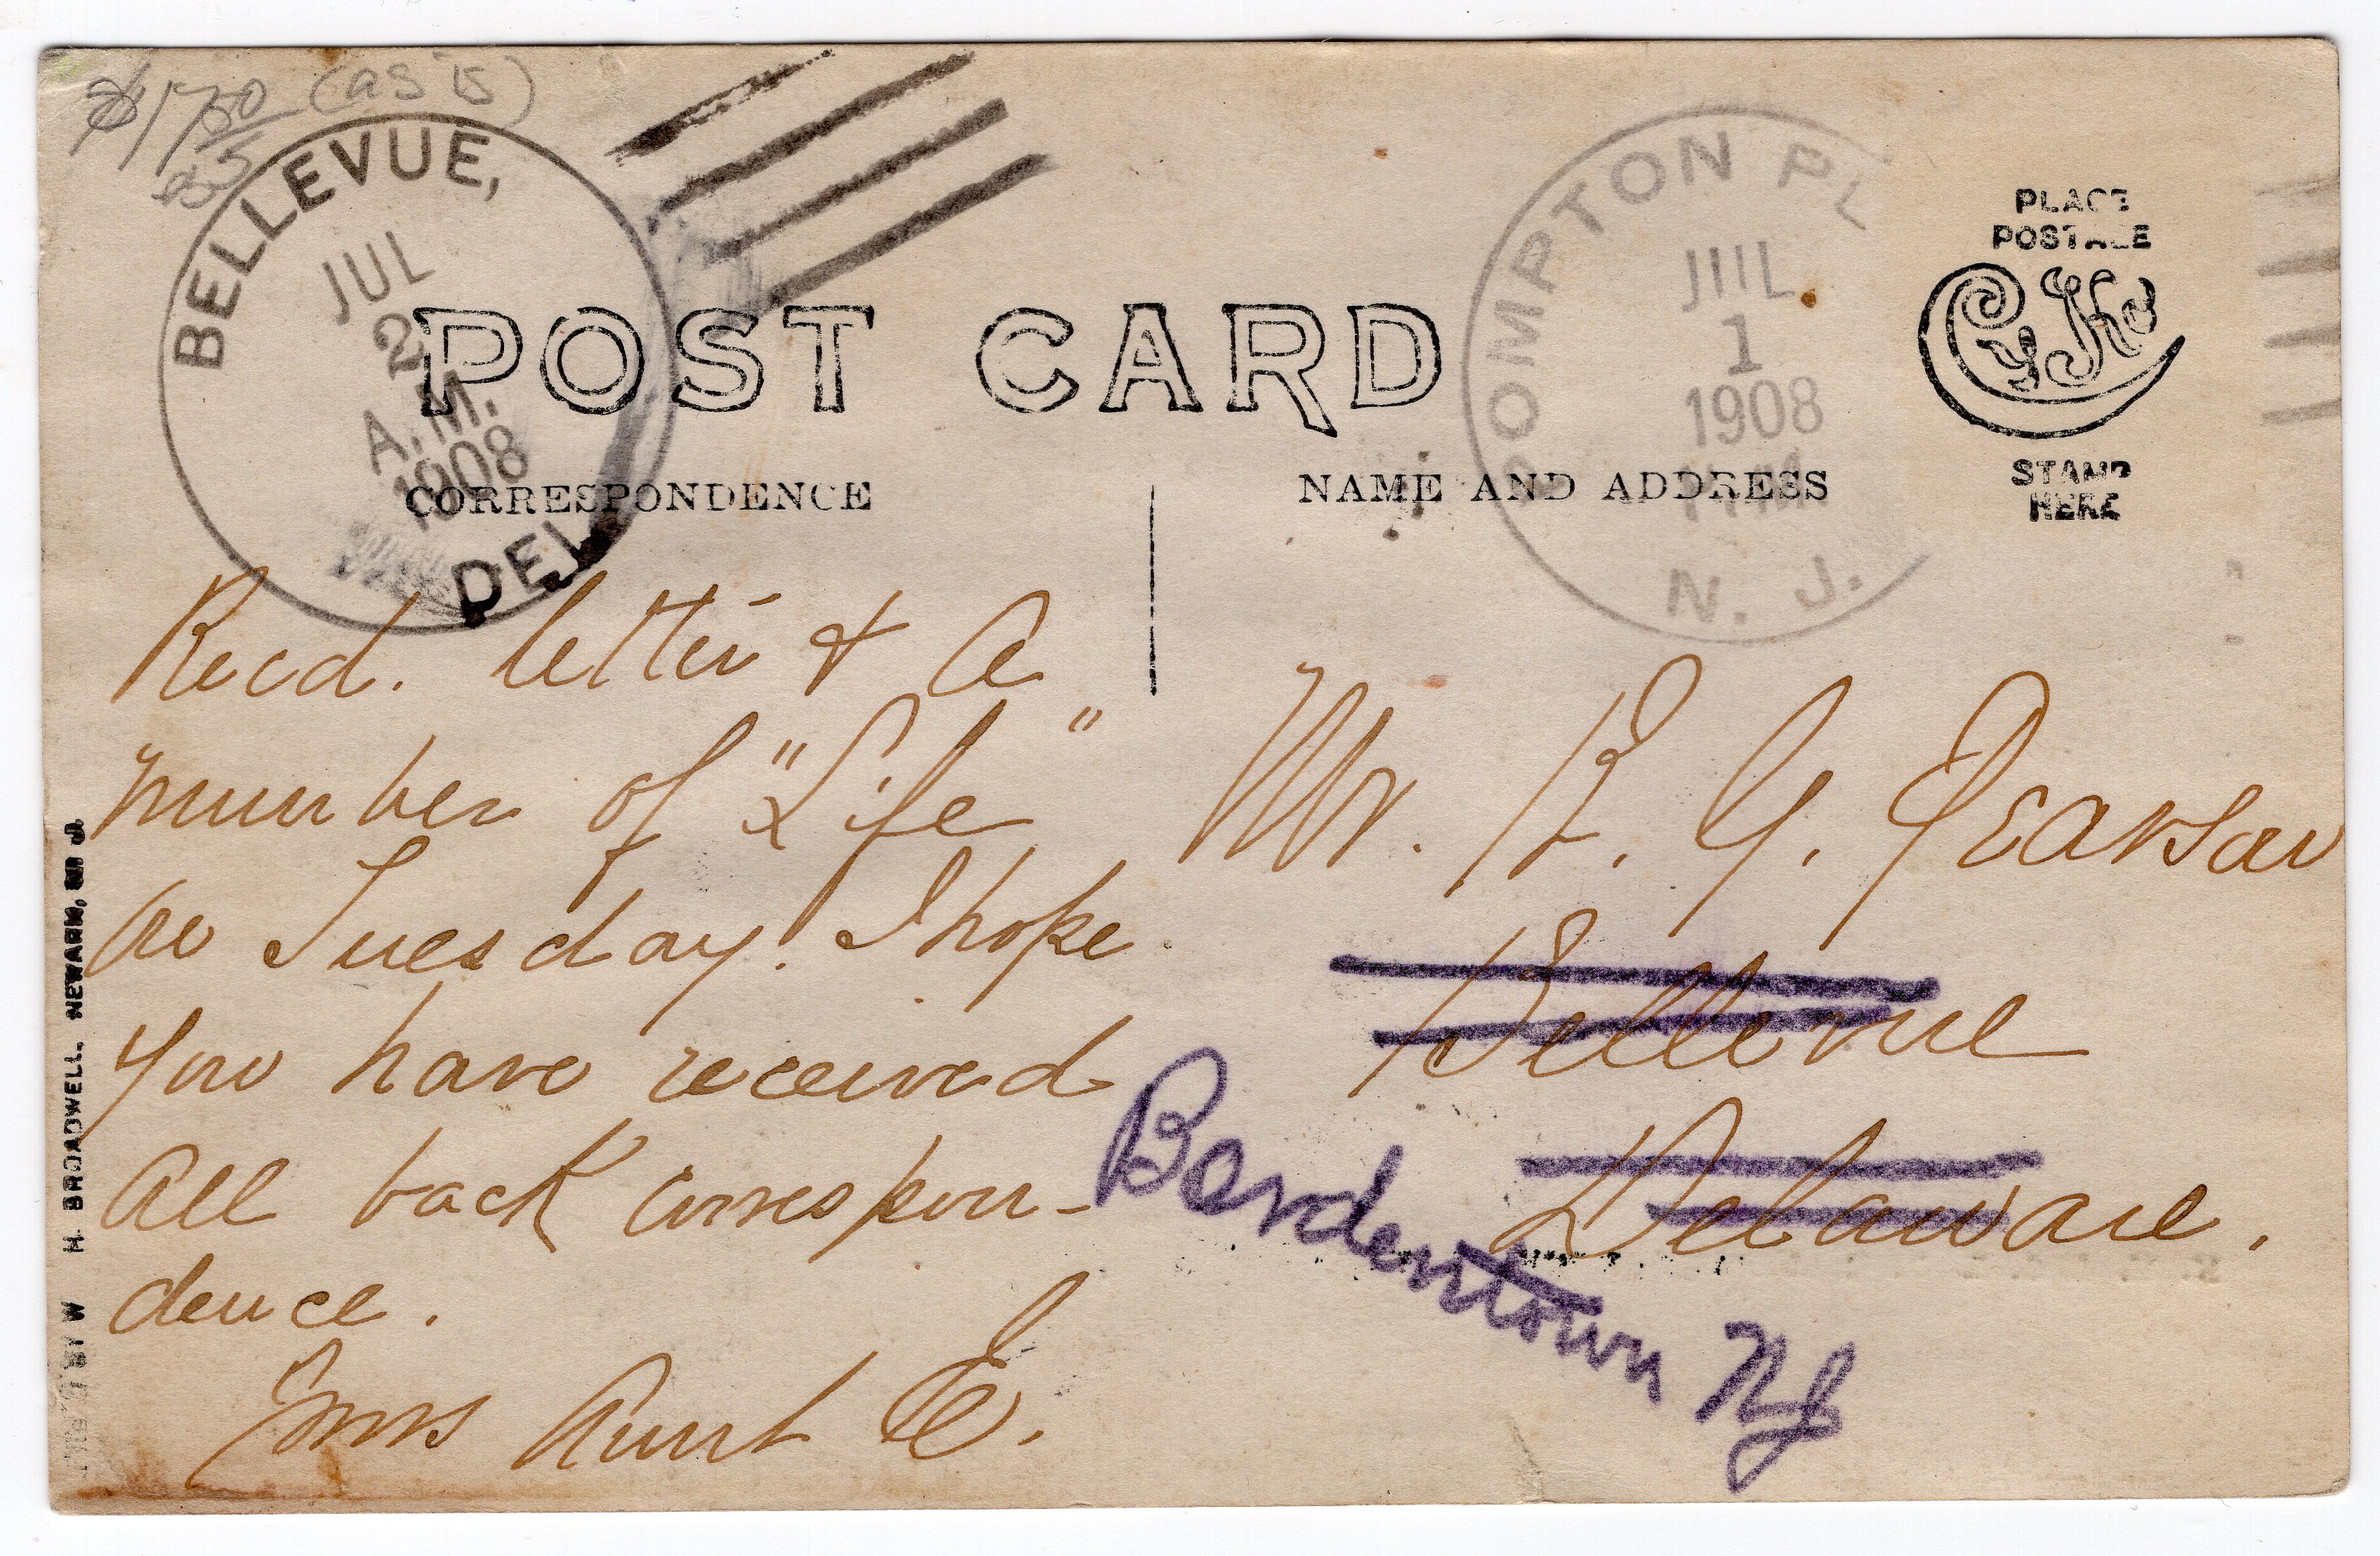 $1750 (as is)
BELLEVUE,
JUL
2
A.M.
1908
DEL
POMPTON PL
JUL
1
1908
N. J.
PLACE
POSTAGE
CYKO
STAMP
HERE
POST CARD
CORRESPONDENCE
NAME AND ADDRESS
Recd. letter & a
number of "Life"
on Tuesday. I hope
you have received
all back correspon-
dence.
Yours Aunt E.
Mr. R. G. Pearson
Bellevue
Delaware.
Bordentown NJ
BY W H. BROADWELL. NEWARK, N J.